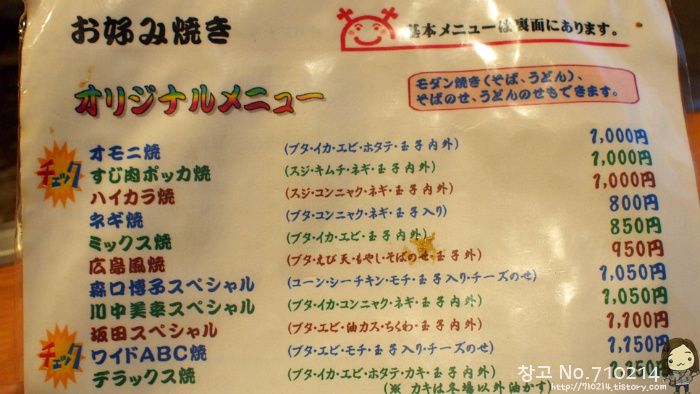 お好み焼き
基本メニューは裏面にあります。
オリジナルメニュー
モダン焼き(そば、うどん)、
そばのせ、うどんのせもできます。
チェック
オモニ焼 (ブタ・イカ・エビ・ホタテ・玉子内外) 1,000円
すじ肉ポッカ焼 (スジ・キムチ・ネギ・玉子内外) 1,000円
ハイカラ焼 (スジ・コンニャク・ネギ・玉子内外) 1,000円
ネギ焼 (ブタ・コンニャク・ネギ・玉子入り) 800円
ミックス焼 (ブタ・イカ・エビ・玉子内外) 850円
広島風焼 (ブタ・えび天・もやし・そばのせ・玉子外) 950円
森口博子スペシャル (コーン・シーチキン・モチ・玉子入り・チーズのせ) 1,050円
川中美幸スペシャル (ブタ・イカ・コンニャク・ネギ・玉子内外) 1,050円
坂田スペシャル (ブタ・エビ・油カス・ちくわ・玉子内外) 1,100円
チェック
ワイドABC焼 (ブタ・エビ・モチ・玉子入り・チーズのせ) 1,150円
デラックス焼 (ブタ・イカ・エビ・ホタテ・カキ・玉子内外)
(※ カキは冬場以外油かす)
창고 No.710214
http://710214.tistory.com/